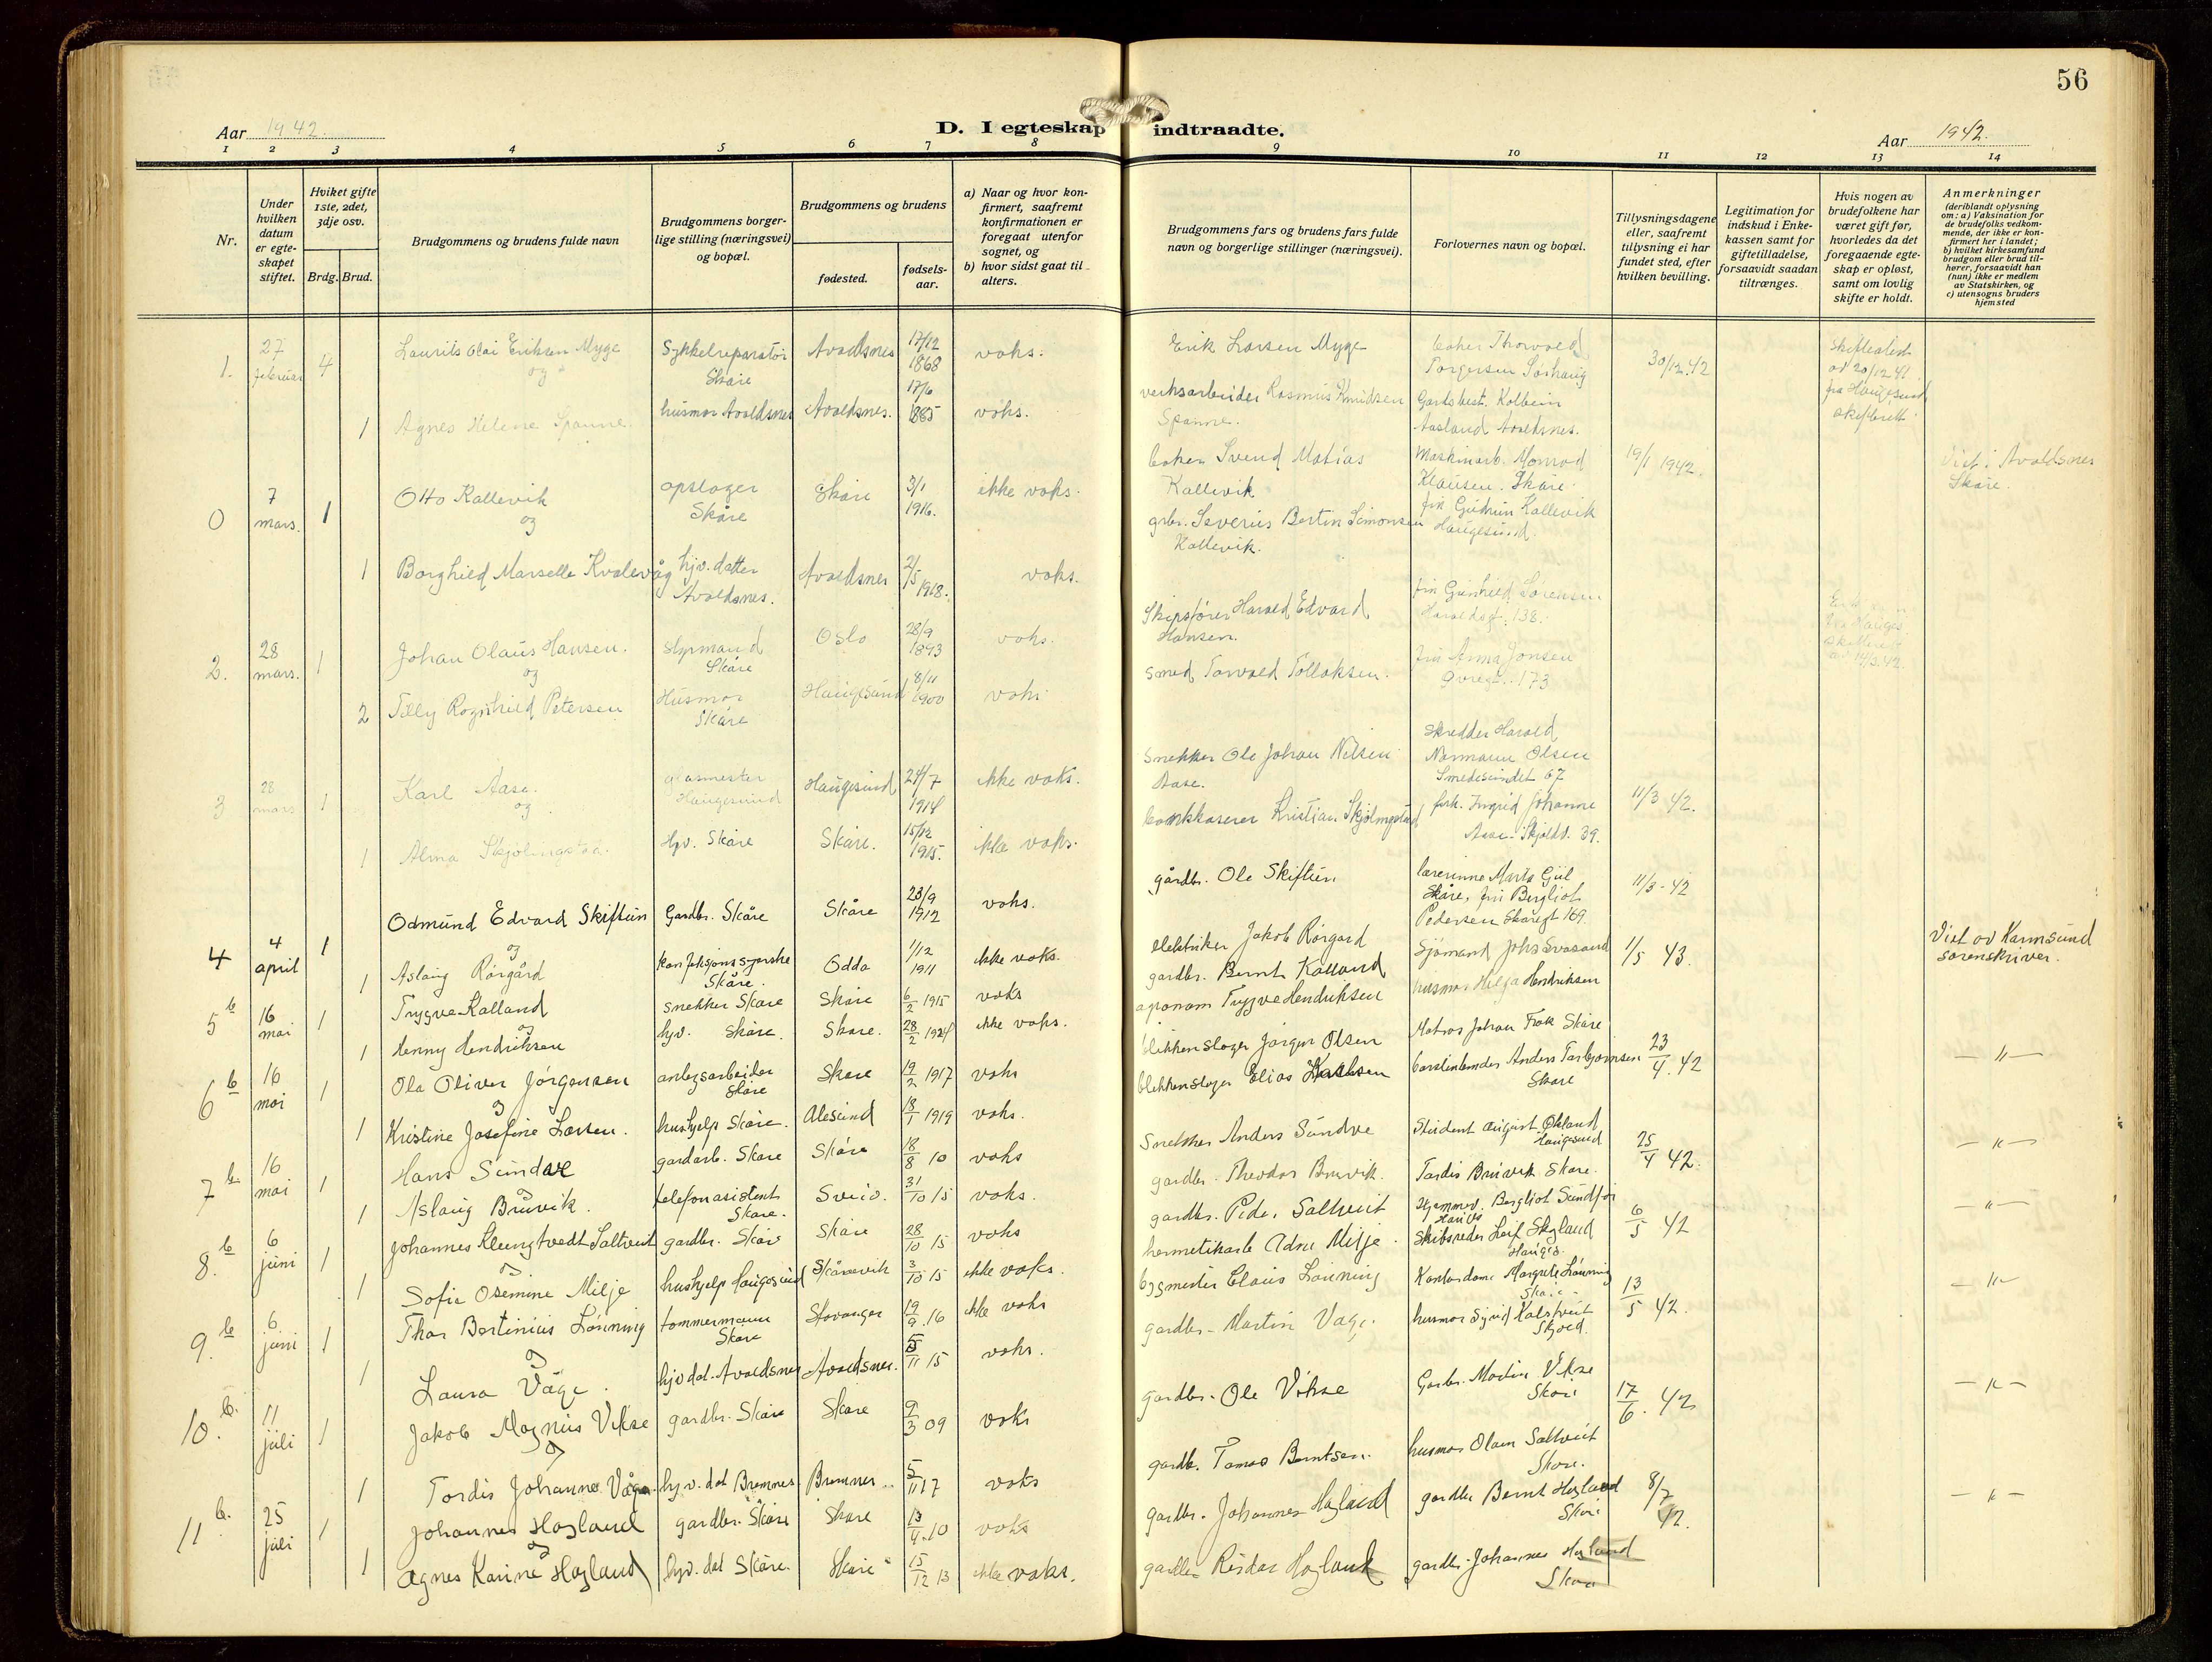 56
Aar 1942.
D. I egteskap indtraadte.
Aar 1942.
1 2 3 4 5 6 7 8 9 10 11 12 13 14
Nr.
Under hvilken datum er egte- skapet stiftet.
Hviket gifte 1ste, 2det, 3dje osv.
Brdg. Brud.
Brudgommens og brudens fulde navn
Brudgommens borger- lige stilling (næringsvei) og bopæl.
Brudgommens og brudens
fødested.
fødsels- aar.
a) Naar og hvor kon- firmert, saafremt konfirmationen er foregaat utenfor sognet, og
b) hvor sidst gaat til alters.
Brudgommens fars og brudens fars fulde navn og borgerlige stillinger (næringsvei).
Forlovernes navn og bopæl.
Tillysningsdagene eller, saafremt tillysning ei har fundet sted, efter hvilken bevilling.
Legitimation for indskud i Enke- kassen samt for giftetilladelse, forsaavidt saadan tiltrænges.
Hvis nogen av brudefolkene har været gift før, hvorledes da det foregaaende egte- skap er opløst, samt om lovlig skifte er holdt.
Anmerkninger (deriblandt oplysning om: a) Vaksination for de brudefolks vedkom- mende, der ikke er kon- firmert her i landet; b) hvilket kirkesamfund brudgom eller brud til- hører, forsaavidt han (hun) ikke er medlem av Statskirken, og c) utensogns bruders hjemsted
1. 27 februar 4 Laurits Olai Eriksen Myge Sykkelreparatør Skåre Avaldsnes 17/12 1868 vaks. Erik Larsen Myge Torgersen 30/12.42 skifteattest av 20/12 41 fra Haugesund skifterett.
og
1 Agnes Helene Spanne. husmor Avaldsnes Avaldsnes. 17/6 1885 vaks. verksarbeider Rasmus Knudsen Spanne. Gardsbest. Kolbein Aasland Avaldsnes.
0 7 mars. 1 Otto Kallevik opslager Skåre Skåre 3/1 1916. ikke vaks. baker Svend Matias Kallevik Maskinarb. Monrad Klausen. Skåre. 19/1 1942. Viet i Avaldsnes Skåre.
og
1 Borghild Marselle Kvalevåg hjv. datter Avaldsnes. Avaldsnes 2/5 1918. vaks. grbr. Severius Bertin Simonsen Kallevik. fru Gudrun Kallevik Haugesund.
2. 28 mars. 1 Johan Olaus Hansen. styrmand Skåre Oslo 28/9 1893 vaks. Skipsfører Harald Edvard Hansen. fru Gunhild Sørensen Haraldsgt. 138.
og
2 Tilly Ragnhild Petersen Husmor Skåre Haugesund 8/11 1900 vaks. smed Torvald Tollaksen. fru Anna Jonsen 173
3 28 mars 1 Karl Aase. glasmester Haugesund Haugesund 24/7 1914 ikke vaks. Snekker Ole Johan Nilsen Aase. Skredder Harald Normann Olsen Smedesundet 67 11/3 42.
og
1 Alma Skjølingstad. hjv. Skåre Skåre. 15/12 1915. ikke vaks. bankkaserer Kristian Skjølingstad frk. Ingrid Johanne Aase. Skjoldv. 39.
4 4 april 1 Odmund Edvard Skiftun Gardbr. Skåre Skåre 23/9 1912 vaks. gårdbr. Ole Skiftun lærerinne Marta Gul Skåre, fru Bergliot Pedersen Skåregt 169. 11/3-42 Viet av Karmsund sorenskriver.
og
1 Aslaug Rörgård konfeksjonssyerske Skåre. Odda 1/12 1911 ikke vaks. elektriker Jakob Rörgard
5 b 16 mai 1 Trygve Kalland snekker Skåre Skåre 6/2 1915 vaks gardbr. Bernt Kalland Sjömand Johs Svasand 1/5 43.
og
1 Henny Hendriksen hjv. Skåre. Skåre. 28/2 1924 ikke vaks. agronom Trygve Hendriksen husmor Helga Hendriksen
6 b 16 mai 1 Ole Oliver Jörgensen anlegsarbeider Skåre Skåre 19/2 1917 vaks blikkenslager Jörgen Olsen Matros Johan Skåre 23/4. 42 — " —
og
1 Kristine Josefine Larsen. hushjelp Skåre. Alesund 18/1 1919 vaks. blikkenslager Elias Anders Torbjornsen Skåre
7 b 16 mai 1 Hans Sundve gardarb. Skåre Skåre 18/8 10 vaks Snekker Anders Sundve Student August Økland Haugesund 25/4 42. — " —
og
1 Aslaug Bruvik. telefonasistent Skåre. Sveio. 31/10 15 vaks. gardbr. Theodor Bruvik. Tordis Bruvik Skåre.
8. b 6 juni 1 Johannes Kleengtvedt Saltveit gardbr. Skåre Skåre 28/10 15 vaks gardbr. Peder Saltveit Hjemmev. Bergliot Sundfør 6/5 42 — " —
og
1 Sofie Osemine Milje hushjelp Haugesund Skånevik 3/10 15 ikke vaks. hermetikarb. Milje. Skibsreder Leif Skgland Hauges.
9. b 6 juni 1 Thor Bertinius Lönning tommermann Skåre Stavanger 19/9 16 ikke vaks bygmester Claus Lönning Kontordame Margrete Lönning Skåre 13/5 42. — " —
og
1 Laura Våge. hjv dat. Avaldsnes Avaldsnes. 5/11 15 vaks. gardbr. Martin Våge. husmor Sigrid Kalstveit Skjold.
10. b. 11 juli 1 Jakob Magnus Vikse gardbr. Skåre Skåre 9/3 09 vaks gardbr. Ole Vikse Garbr. Martin Vikse Skåre 17/6. 42 — " —
og
1 Tordis Johanne Våga. hjv. dat Bremnes. Bremnes.. 5/11 17 vaks gardb. Tomas Berntsen. husmor Olam Saltveit Skåre.
11 b. 25 juli 1 Johannes Hagland gardbr. Skåre Skåre 13/4. 10 vaks gardbr. Johannes Hagland gardbr Bernt Hagland Skåre 8/7 42. — " —
og
1 Agnes Karine Hagland hjv. dat Skåre. Skåre 15/12 13 ikke vaks. gardbr Hagland gardbr. Johannes Hagland Skåre